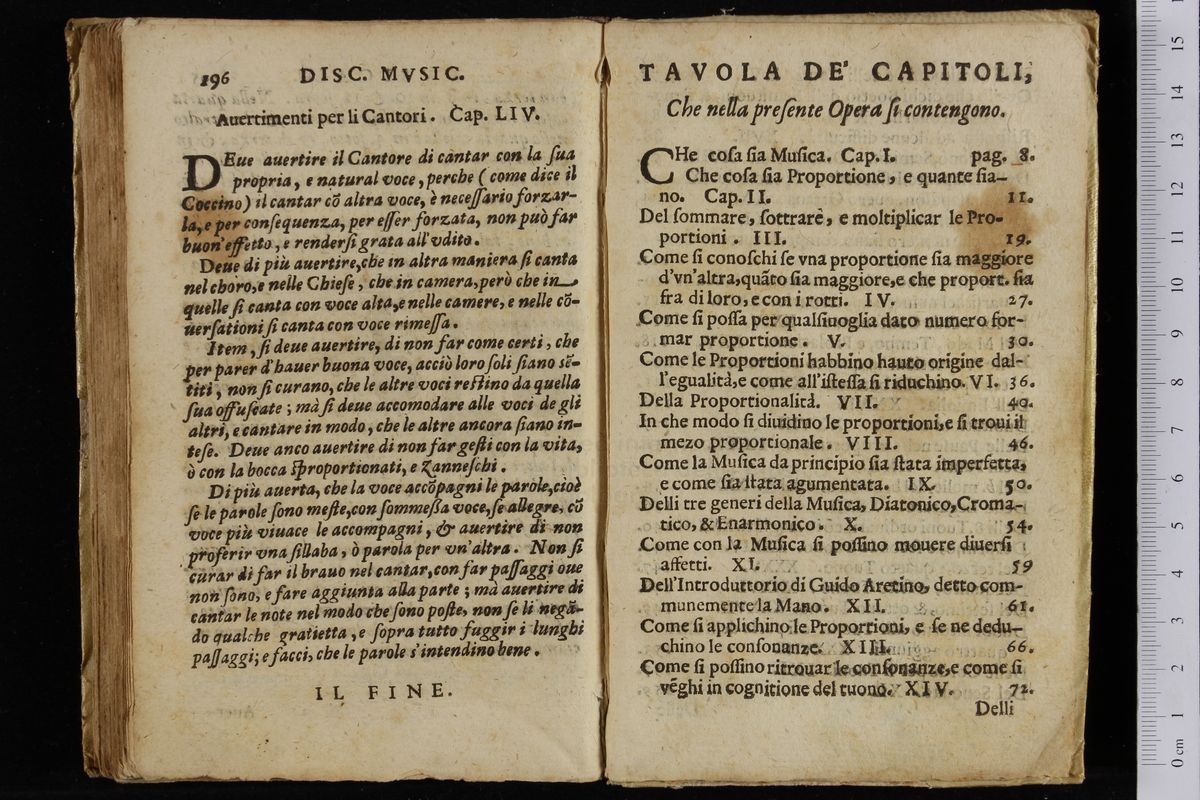 196 DISC. MVSIC.
Auertimenti per li Cantori. Cap. LIV.
DEue auertire il Cantore di cantar con la ſua
propria, e natural voce, perche ( come dice il
Coccino) il cantar cō altra voce, è neceſſario forzar-
la, e per conſequenza, per eſſer forzata, non può far
buon'effetto, e renderſi grata all'vdito.
Deue di più auertire, che in altra maniera ſi canta
nel choro, e nelle Chieſe, che in camera, però che in
quelle ſi canta con voce alta, e nelle camere, e nelle cō-
uerſationi ſi canta con voce rimeſſa.
Item, ſi deue auertire, di non far come certi, che
per parer d'hauer buona voce, acciò loro ſoli ſiano sē-
titi, non ſi curano, che le altre voci reſtino da quella
ſua offuſcate; mà ſi deue accomodare alle voci de gli
altri, e cantare in modo, che le altre ancora ſiano in-
teſe. Deue anco auertire di non far geſti con la vita,
ò con la bocca ſproportionati, e Zanneſchi.
Di più auerta, che la voce accōpagni le parole, cioè
ſe le parole ſono meſte, con ſommeſſa voce, ſe allegre, cō
voce più viuace le accompagni, & auertire di non
proferir vna ſillaba, ò parola per vn'altra. Non ſi
curar di far il brauo nel cantar, con far paſſaggi oue
non ſono, e fare aggiunta alla parte; mà auertire di
cantar le note nel modo che ſono poſte, non ſe li negā-
do qualche gratietta, e ſopra tutto fuggir i lunghi
paſſaggi; e facci, che le parole s'intendino bene.
IL FINE.
TAVOLA DE' CAPITOLI,
Che nella preſente Opera ſi contengono.
CHe coſa ſia Muſica. Cap. I. pag. 8.
Che coſa ſia Proportione, e quante ſia-
no. Cap. II. 11.
Del ſommare, ſottrare, e moltiplicar le Pro-
portioni. III. 19.
Come ſi conoſchi ſe vna proportione ſia maggiore
d'vn'altra, quāto ſia maggiore, e che proport. ſia
fra di loro, e con i rotti. IV. 27.
Come ſi poſſa per qualſiuoglia dato numero for-
mar proportione. V. 30.
Come le Proportioni habbino hauto origine dal-
l'egualità, e come all'iſteſſa ſi riduchino. VI. 36.
Della Proportionalità. VII. 40.
In che modo ſi diuidino le proportioni, e ſi troui il
mezo proportionale. VIII. 46.
Come la Muſica da principio ſia ſtata imperfetta,
e come ſia ſtata agumentata. IX. 50.
Delli tre generi della Muſica, Diatonico, Croma-
tico, & Enarmonico. X. 54.
Come con la Muſica ſi poſſino mouere diuerſi
affetti. XI. 59
Dell'Introduttorio di Guido Aretino, detto com-
munemente la Mano. XII. 61.
Come ſi applichino le Proportioni, e ſe ne dedu-
chino le conſonanze. XIII. 66.
Come ſi poſſino ritrouar le conſonanze, e come ſi
vēghi in cognitione del tuono. XIV. 72.
Delli
0 cm 1 2 3 4 5 6 7 8 9 10 11 12 13 14 15